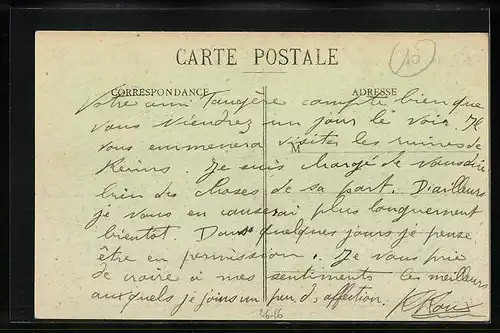 10
CARTE POSTALE
CORRESPONDANCE
ADRESSE
Votre ami Tangère compte bien que
vous viendrez un jour le voir. Il
vous emmenera visiter les ruines de
M
Reims. Je suis chargé de vous dire
bien des choses de sa part. D'ailleurs
je vous en causerai plus longuement
bientot. Dans quelques jours je pense
être en permission. Je vous prie
de croire à mes sentiments les meilleurs
auxquels je joins un peu d'affection.